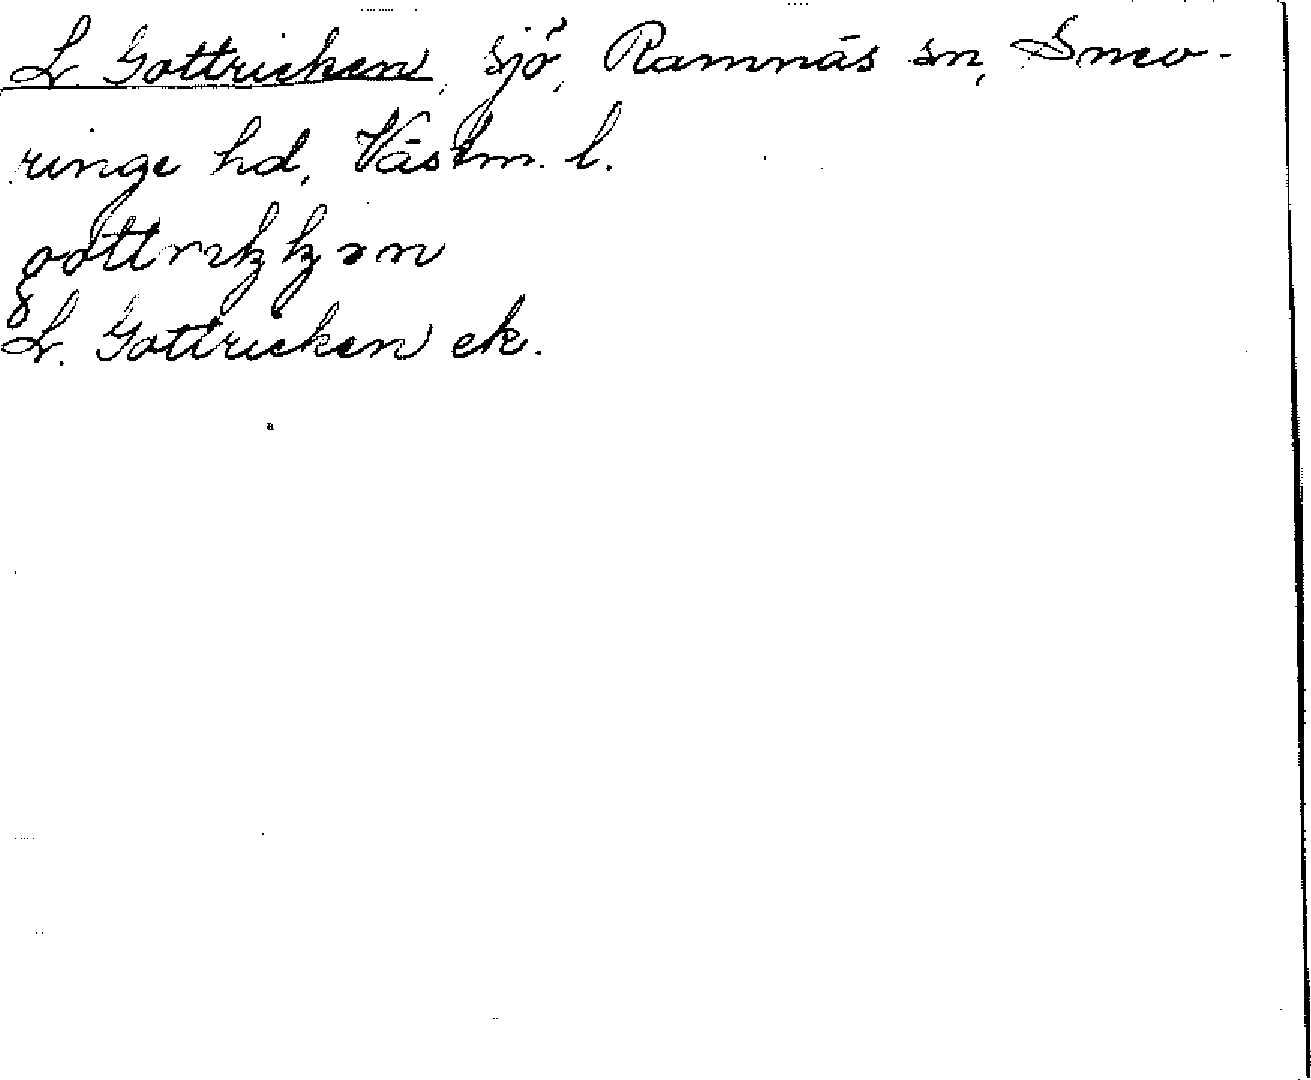 L. Gottricken, sjö, Ramnäs sn, Snev-
ringe hd, Västm. l.
gottrikkən
L. Gottricken ek.